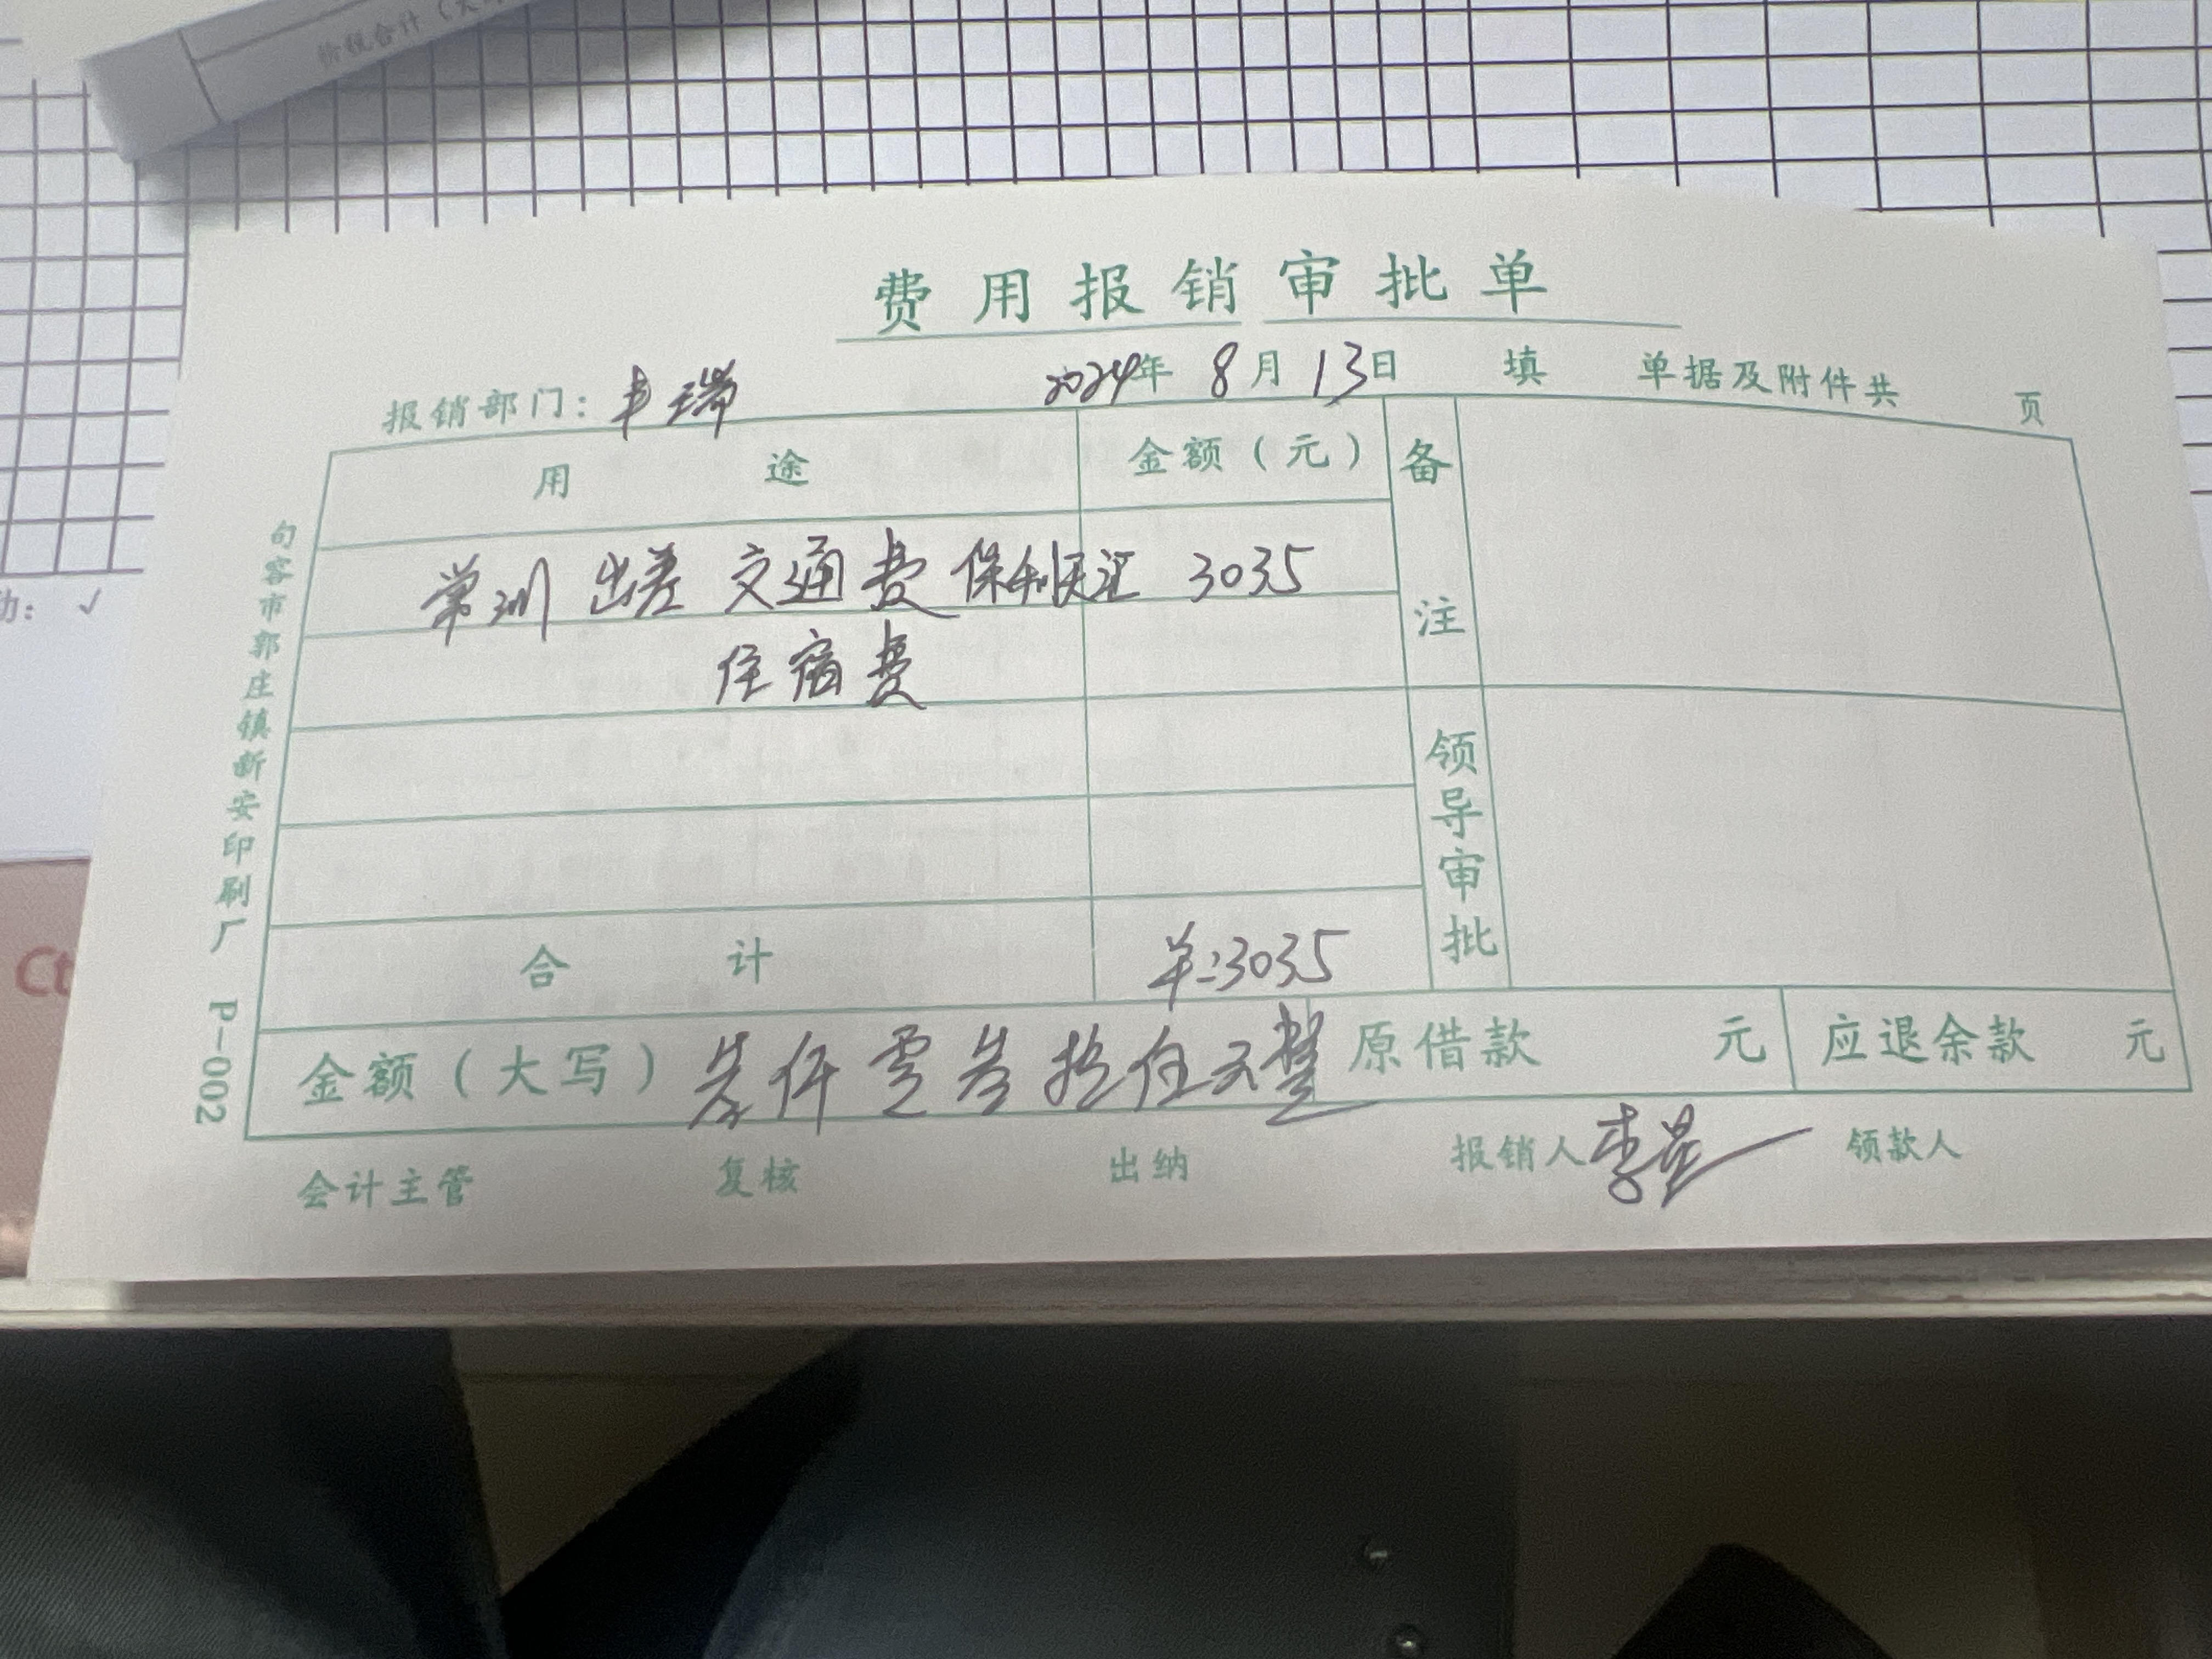 价税合计（大写
费用报销审批单
报销部门：丰瑞 2024年 8月 13日 填 单据及附件共 页
用途 金额（元） 备注
常州 出差 交通费 保利天汇 3035
住宿费
领导审批
合计 ¥:3035
金额（大写）叁仟零叁拾伍元整 原借款 元 应退余款 元
会计主管 复核 出纳 报销人 李 领款人
句容市郭庄镇新安印刷厂 P-002
动：✓
Ct